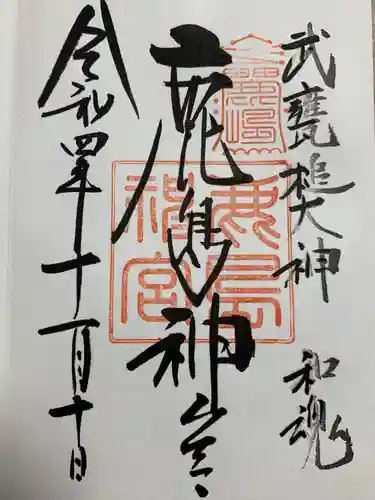 武甕槌大神 和魂
鹿島神宮
令和四年十一月十日
鹿島神宮